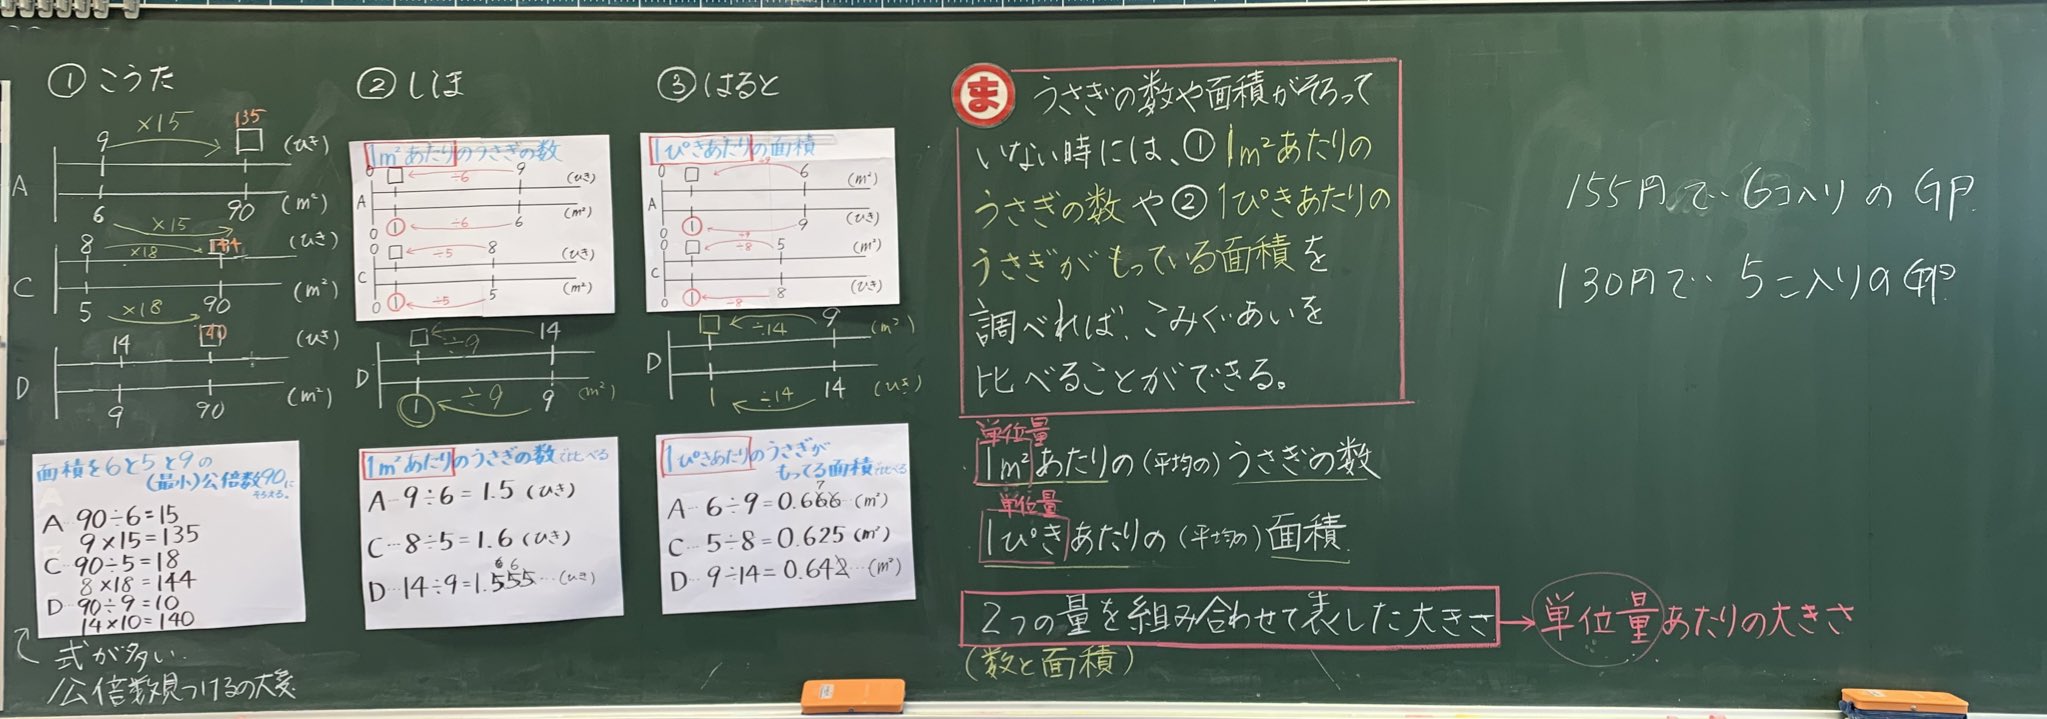 ① こうた
×15
135
9
(ひき)
A
6
90
(m²)
×15
8
×18
144
(ひき)
C
5
×18
90
(m²)
14
140
(ひき)
D
9
90
(m²)
面積を6と5と9の
(最小)公倍数90に
そろえる。
A‥90÷6=15
9×15=135
C‥90÷5=18
8×18=144
D‥90÷9=10
14×10=140
式が多い‥
公倍数見つけるの大変
② しほ
1m²あたりのうさぎの数
0
÷6
9
(ひき)
A
0
1
÷6
6
(m²)
0
÷5
8
(ひき)
C
0
1
÷5
5
(m²)
÷9
14
D
1
÷9
9
(m²)
1m²あたりのうさぎの数で比べる
A‥9÷6=1.5(ひき)
C‥8÷5=1.6(ひき)
6 6
D‥14÷9=1.555‥(ひき)
③ はると
1ぴきあたりの面積
0
÷9
6
(m²)
A
0
1
÷9
9
(ひき)
0
÷8
5
(m²)
C
0
1
÷8
8
(ひき)
÷14
9
(m²)
D
1
÷14
14
(ひき)
1ぴきあたりのうさぎが
もってる面積で比べる
7
A‥6÷9=0.666‥(m²)
C‥5÷8=0.625(m²)
D‥9÷14=0.642‥(m²)
ま
うさぎの数や面積がそろって
いない時には、①1m²あたりの
うさぎの数や②1ぴきあたりの
うさぎがもっている面積を
調べれば、こみぐあいを
比べることができる。
単位量
1m²あたりの(平均の)うさぎの数
単位量
1ぴきあたりの(平均の)面積
2つの量を組み合わせて表した大きさ→単位量あたりの大きさ
(数と面積)
155円で‥6コ入りのGP
130円で‥5こ入りのGP